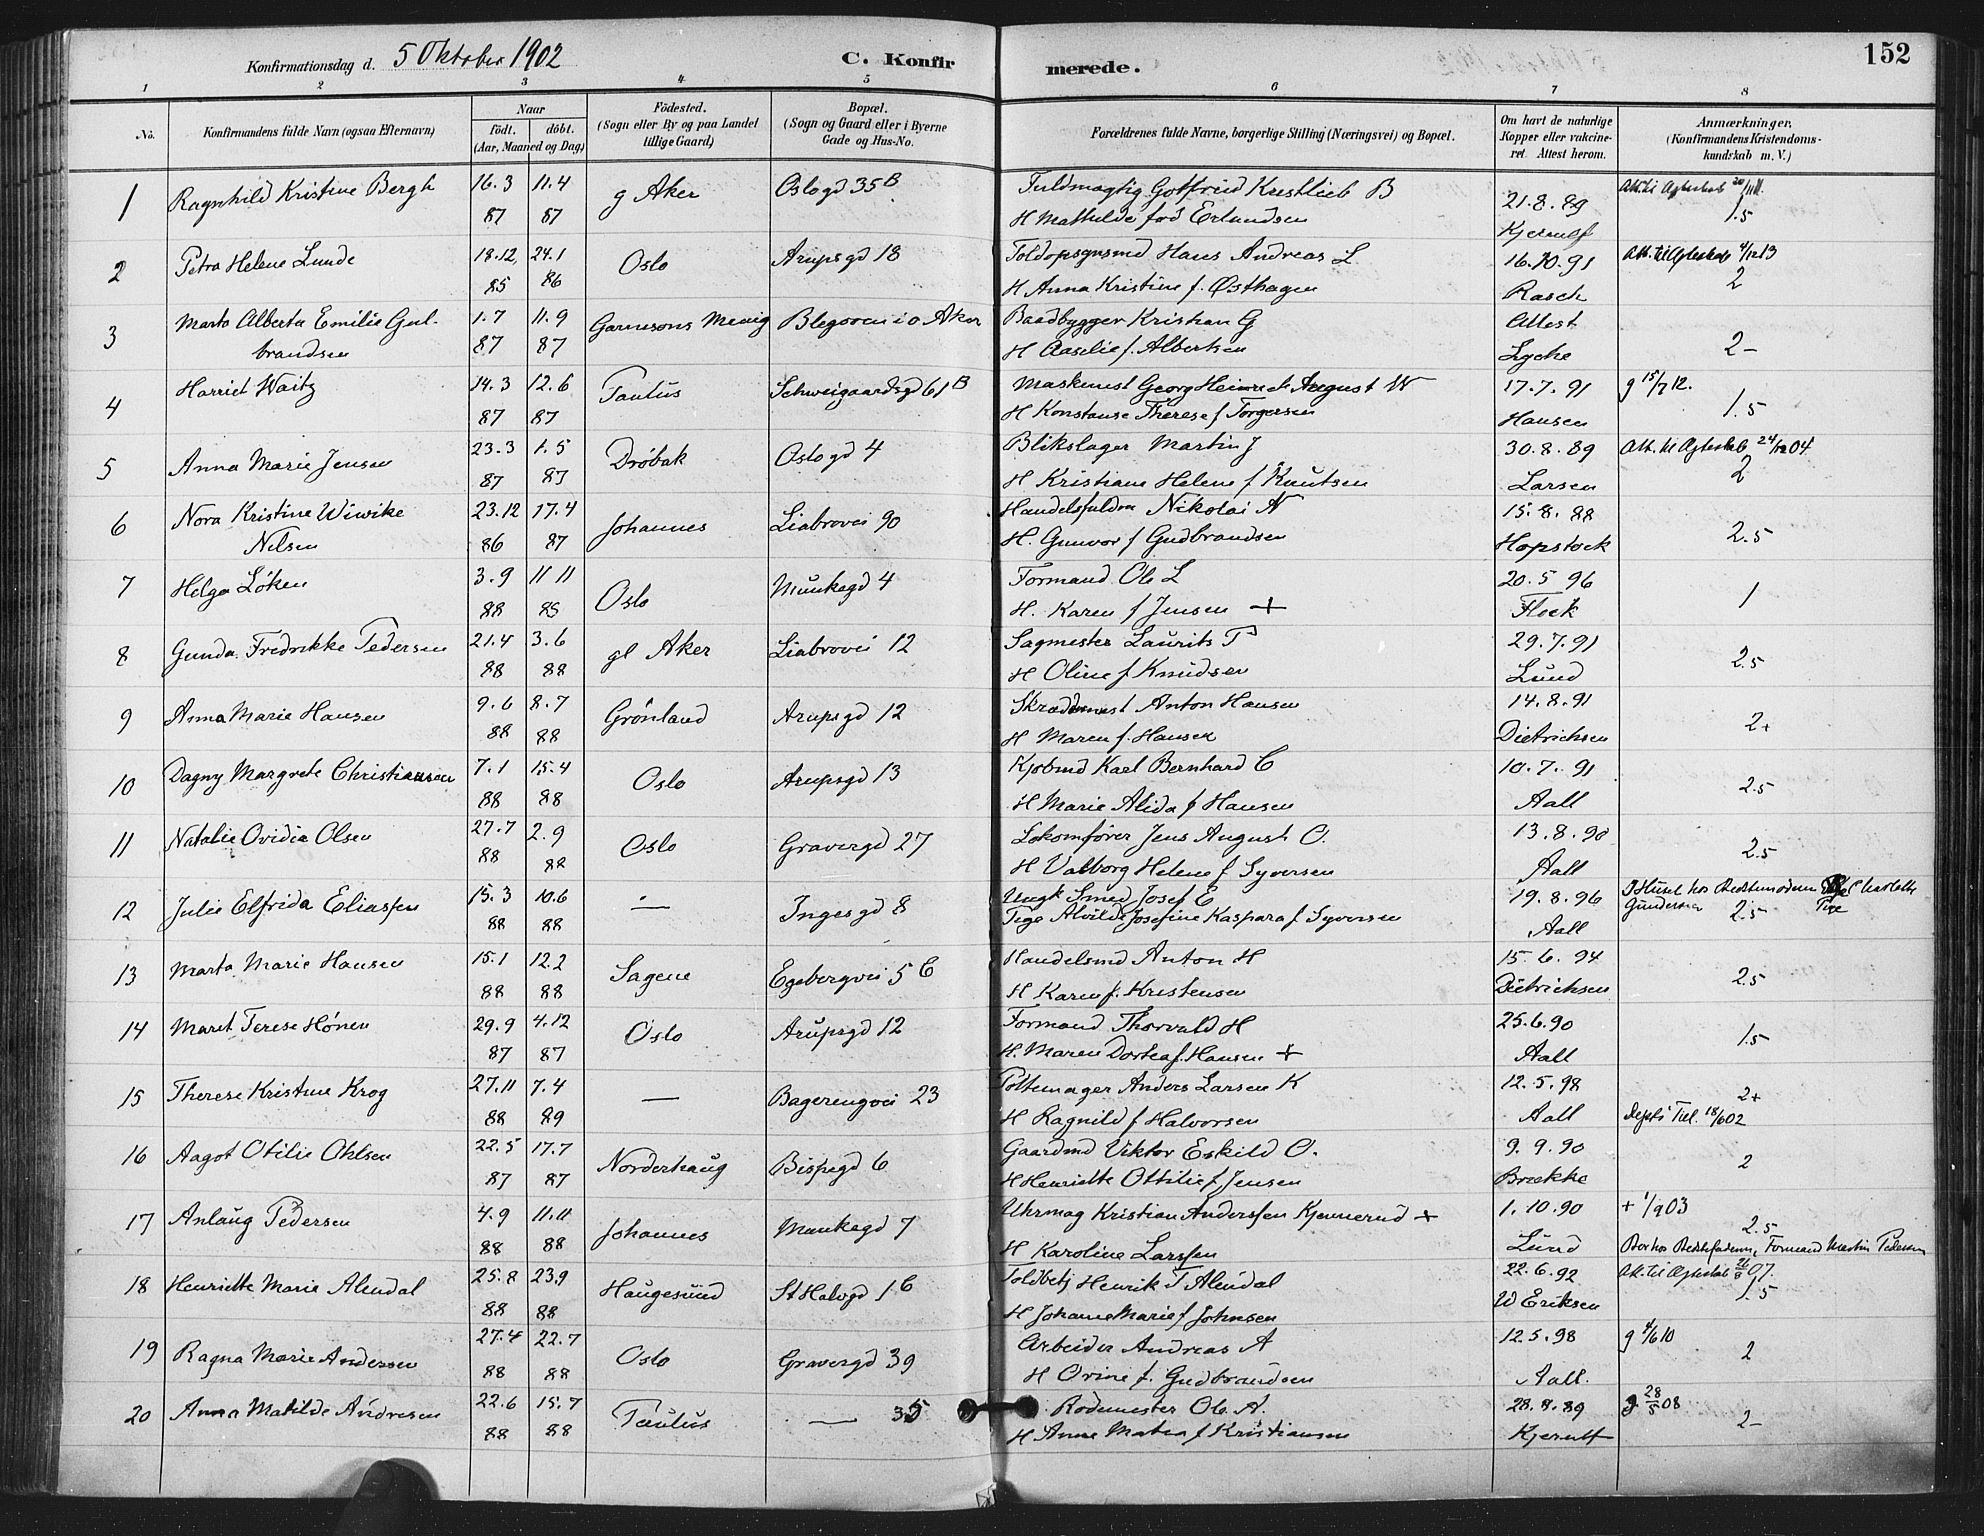 152
Konfirmationsdag d. 5 Oktober 1902 C. Konfirmerede.
1 2 3 4 5 6 7 8
No. Konfirmandens fulde Navn (ogsaa Efternavn) Naar födt. döbt. (Aar, Maaned og Dag) Födested. (Sogn eller By og paa Landet tillige Gaard) Bopæl. (Sogn og Gaard eller i Byerne Gade og Hus-No. Forældrenes fulde Navne, borgerlige Stilling (Næringsvei) og Bopæl. Om havt de naturlige Kopper eller vakcineret. Attest herom. Anmærkninger. (Konfirmandens Kristendomskundskab m. V.)
1 Ragnhild Kristine Bergh 16.3 11.4 g Aker Oslogd 35B Fuldmægtig Gotfried Krestlieb B 21.8.89
87 87 H Mathilde fød Erlandsen Kjerulf 1.5
2 Petra Helene Lunde 18.12 24.1 Oslo Arupsgd 18 Toldopsynsmd Hans Andreas L 16.10.91 Att. til Ægteskab 4/12 13
85 86 H Anna Kristine f. Østhagen Rasch 2
3 Marta Alberta Emilie Gul- 1.7 11.9 Garnisons Menig Blegøens i ø Aker Baadbygger Kristian G Attest
brandsen 87 87 H Aaselie f. Albertsen Lyche 2-
4 Harriet Waitz 14.3 12.6 Paulus Schweigaardsgd 61B Maskinist Georg Heinrich August W 17.7.91 g 15/7 12.
87 87 H Konstanse Therese f Torgersen Hansen 1.5
5 Anna Marie Jensen 23.3 1.5 Dröbak Oslogd 4 Blikslager Martin J 30.8.89 Att. til Ægteskab 24/12 04
87 87 H Kristiane Helene f Knutsen Larsen 2
6 Nora Kristine Wiwike 23.12 17.4 Johannes Liabrovei 90 Handelsfuldm Nikolai N 15.8.88
Nilsen 86 87 H. Gunvor f Gudbrandsen Hopstock 2.5
7 Helga Löken 3.9 11 11 Oslo Munkegd 4 Formand Ole L 20.5 96
88 88 H. Karen f Jensen + Flock 1
8 Gunda Fredrikke Pedersen 21.4 3.6 gl Aker Liabrovei 12 Sagmester Laurits P 29.7.91
88 88 H Oline f Knudsen Lund 2.5
9 Anna Marie Hansen 9.6 8.7 Grönland Arupsgd 12 Skræddermest Anton Hansen 14.8.91
88 88 H Maren f. Hansen Dietrichsen 2+
10 Dagny Margrete Christiansen 7.1 15.4 Oslo Arupsgd 13 Kjøbmd Karl Bernhard C 10.7.91
88 88 H Marie Alida f Hansen Aall 2.5
11 Natalie Ovidia Olsen 27.7 2.9 Oslo Gravergd 27 Lokomfører Jens August O. 13.8.90
88 88 H Valborg Helene f Syversen Aall 2.5
12 Julie Elfrida Eliassen 15.3 10.6 — Ingesgd 8 Ungk Smed Josef E 19.8.96 I Huset hos Bedstemoderen Charlotte
88 88 Pige Alvilde Josefine Kaspara f Syversen Aall Gundersen 2.5
13 Marta Marie Hansen 15.1 12.2 Sagene Egebergvei 5 C Handelsmd Anton H 15.6.94
88 88 H Karen f. Kristensen Dietrichsen 2.5
14 Marit Terese Hönen 29.9 4.12 Oslo Arupsgd 12 Formand Thorvald H 25.6.90
87 87 H. Maren Dortea f. Hansen + Aall 1.5
15 Therese Kristine Krog 27.11 7.4 — Bagerengvei 23 Pottemager Anders Larsen K 12.5.98 2+
88 89 H Ragnild f Halvorsen Aall
16 Aagot Otilie Ohlsen 22.5 17.7 Norderhaug Bispegd 6 Gaardmd Viktor Eskild O. 9.9.90
87 87 H Henriette Ottilie f Jensen Brække 2
17 Anlaug Pedersen 4.9 11.11 Johannes Munkegd 7 Uhrmag Kristian Anderssen Kjennerud + 1.10.90 + 1/9 03
88 88 H Karoline Larssen Lund 2.5 Bor hos Bedstefaderen, Formand Martin Pedersen
18 Henriette Marie Alendal 25.8 23.9 Haugesund St Halvgd 1 C Toldbetj Henrik T Alendal 22.6.92
88 88 H Johanne Marie f Johnsen W Eriksen 1.5
19 Ragna Marie Andersen 27.4 22.7 Oslo Gravergd 39 Arbeider Andreas A 12.5.98 g 4/6 10
88 88 H Orine f. Gudbrandsen Aall. 2
20 Anna Matilde Andresen 22.6 15.7 Paulus — 35 Rodemester Ole A. 28.8.89 g 28/5 08
88 88 H Anne Matea f Kristiansen Kjerulf 2-